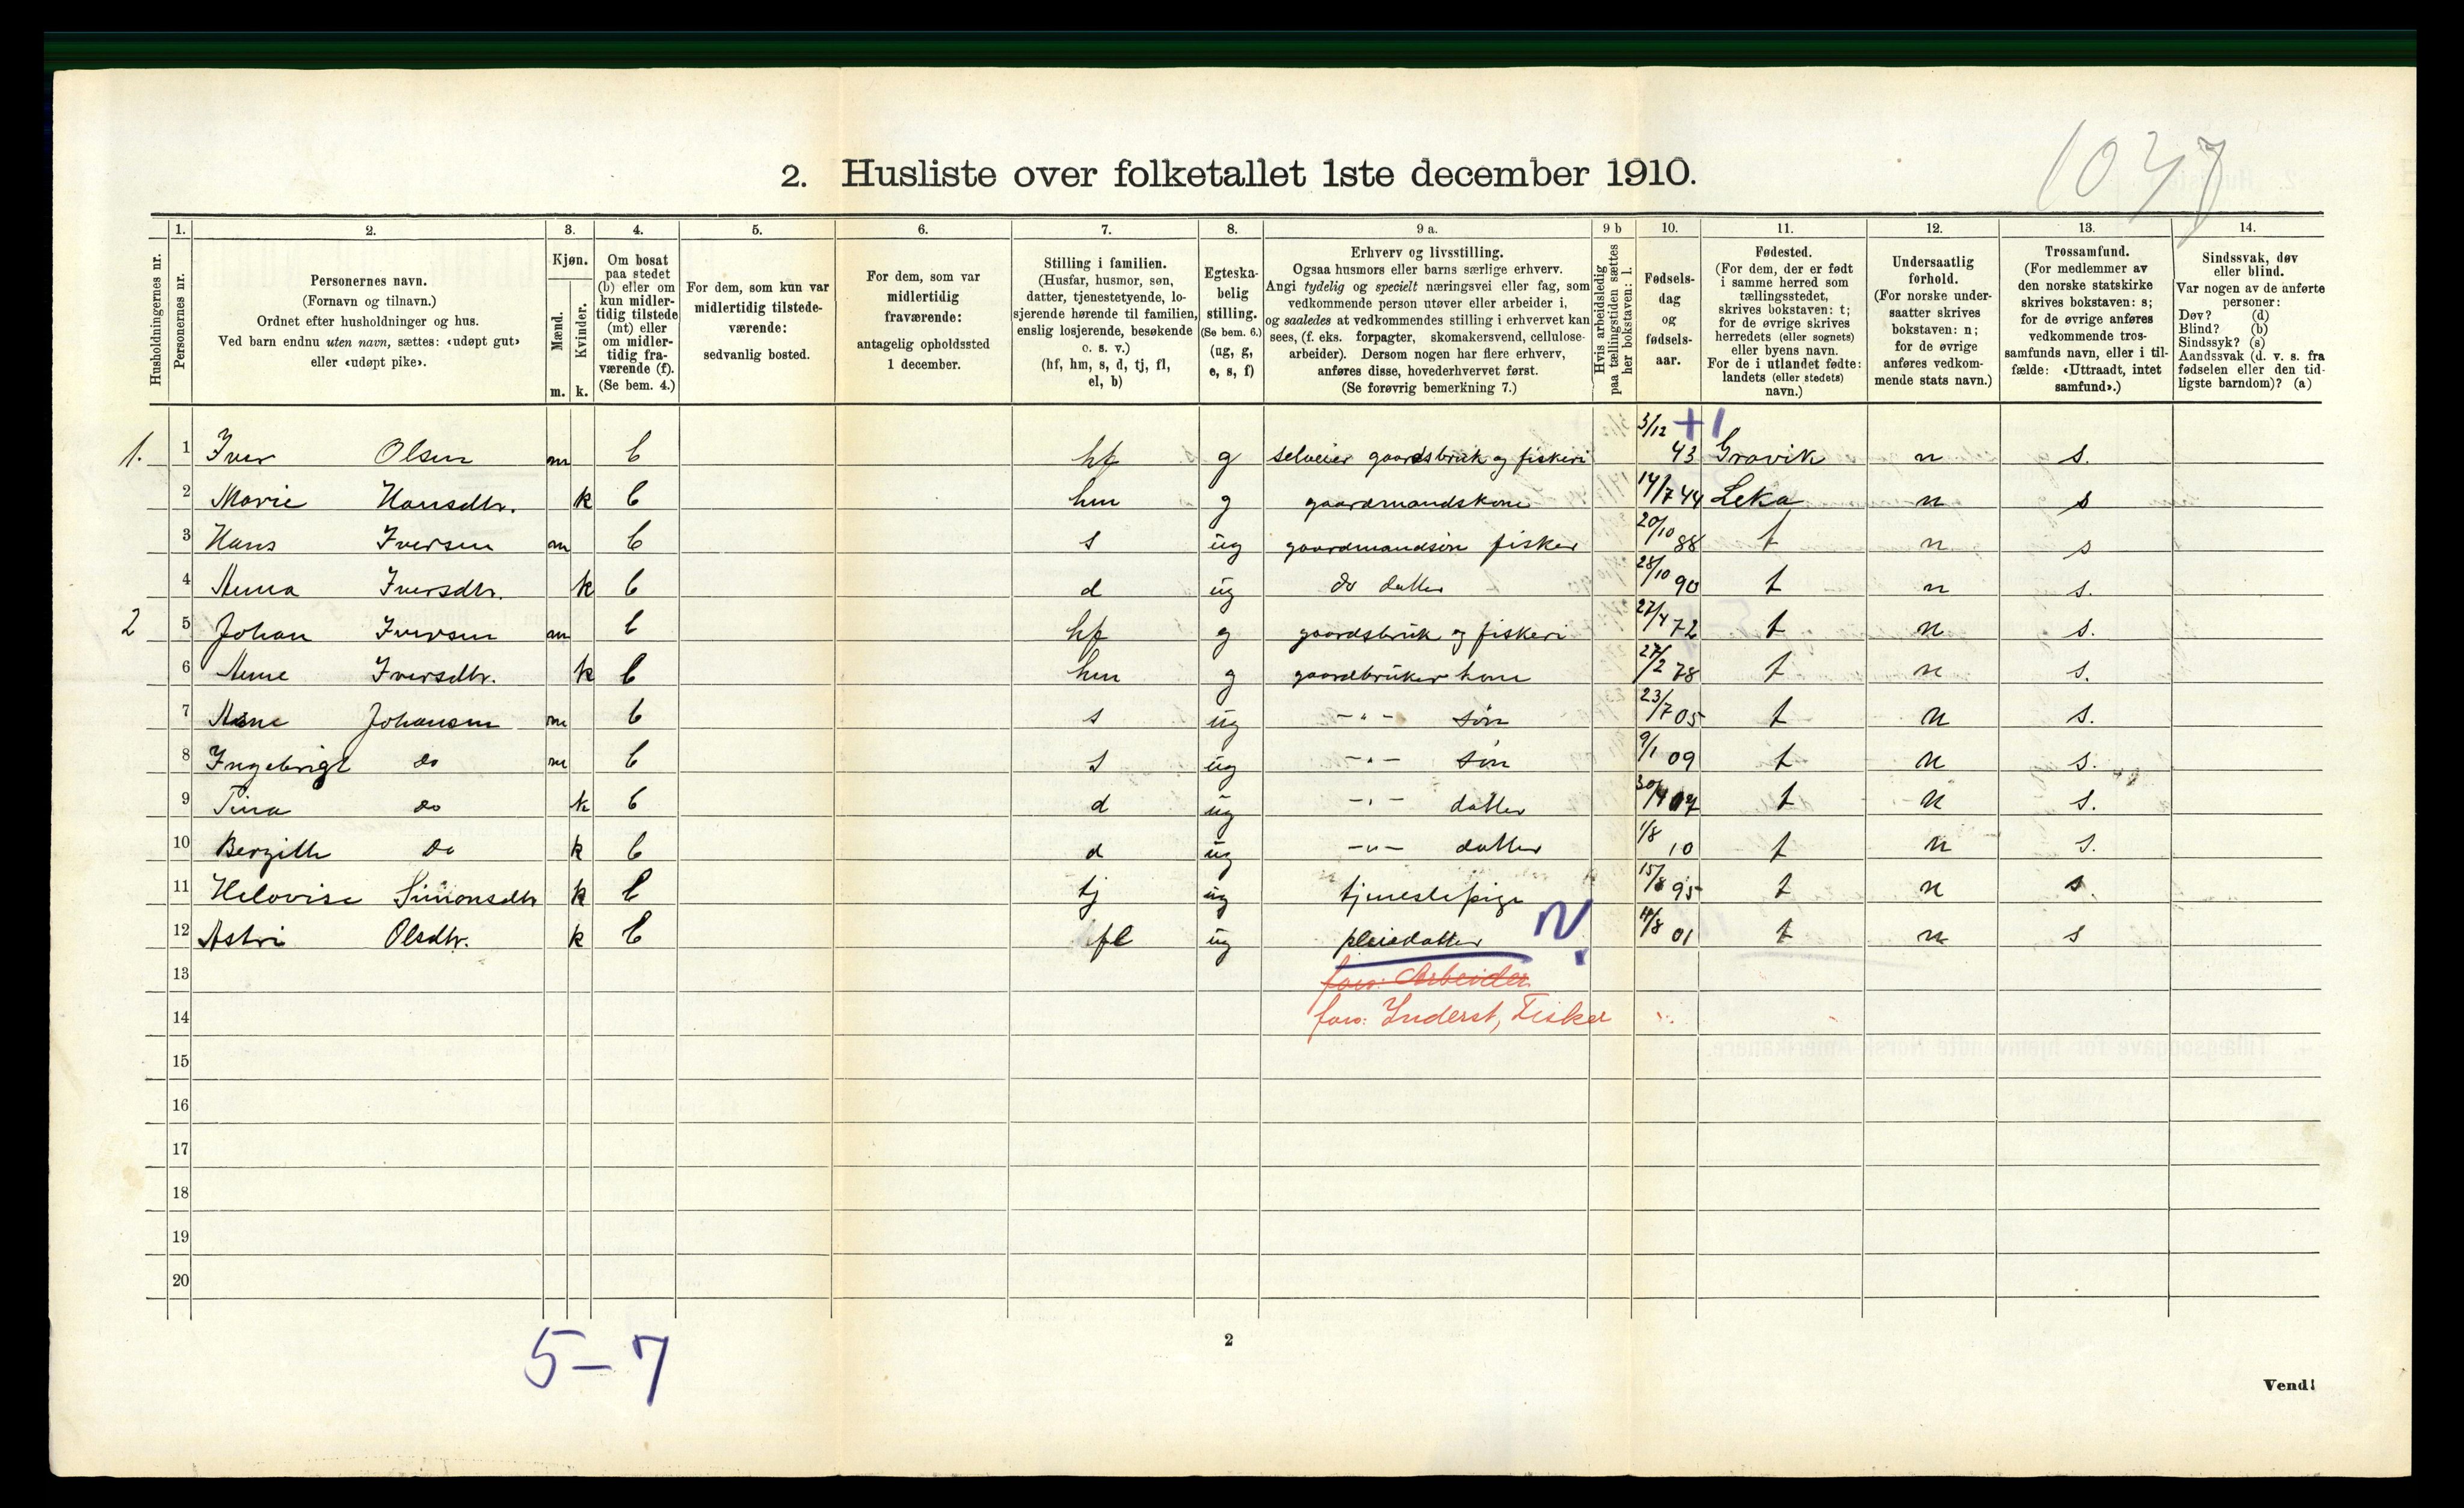 1047
2. Husliste over folketallet 1ste december 1910.
Husholdningernes nr.
1.
Personernes nr.
2.
Personernes navn.
(Fornavn og tilnavn.)
Ordnet efter husholdninger og hus.
Ved barn endnu uten navn, sættes: «udøpt gut»
eller «udøpt pike».
3.
Kjøn.
Mænd.
Kvinder.
m. k.
4.
Om bosat
paa stedet
(b) eller om
kun midler-
tidig tilstede
(mt) eller
om midler-
tidig fra-
værende (f).
(Se bem. 4.)
5.
For dem, som kun var
midlertidig tilstede-
værende:
sedvanlig bosted.
6.
For dem, som var
midlertidig
fraværende:
antagelig opholdssted
1 december.
7.
Stilling i familien.
(Husfar, husmor, søn,
datter, tjenestetyende, lo-
sjerende hørende til familien,
enslig losjerende, besøkende
o. s. v.)
(hf, hm, s, d, tj, fl,
el, b)
8.
Egteska-
belig
stilling.
(Se bem. 6.)
(ug, g,
e, s, f)
9 a.
Erhverv og livsstilling.
Ogsaa husmors eller barns særlige erhverv.
Angi tydelig og specielt næringsvei eller fag, som
vedkommende person utøver eller arbeider i,
og saaledes at vedkommendes stilling i erhvervet kan
sees, (f. eks. forpagter, skomakersvend, cellulose-
arbeider). Dersom nogen har flere erhverv,
anføres disse, hovederhvervet først.
(Se forøvrig bemerkning 7.)
9 b
Hvis arbeidsledig
paa tællingstiden sættes
her bokstaven: l.
10.
Fødsels-
dag
og
fødsels-
aar.
11.
Fødested.
(For dem, der er født
i samme herred som
tællingsstedet,
skrives bokstaven: t;
for de øvrige skrives
herredets (eller sognets)
eller byens navn.
For de i utlandet fødte:
landets (eller stedets)
navn.)
12.
Undersaatlig
forhold.
(For norske under-
saatter skrives
bokstaven: n;
for de øvrige
anføres vedkom-
mende stats navn.)
13.
Trossamfund.
(For medlemmer av
den norske statskirke
skrives bokstaven: s;
for de øvrige anføres
vedkommende tros-
samfunds navn, eller i til-
fælde: «Uttraadt, intet
samfund».)
14.
Sindssvak, døv
eller blind.
Var nogen av de anførte
personer:
Døv? (d)
Blind? (b)
Sindssyk? (s)
Aandssvak (d. v. s. fra
fødselen eller den tid-
ligste barndom)? (a)
+1
1. 1 Iver Olsen m b hf g selveier gaardsbruk og fiskeri 3/12 43 Gravik n s.
2 Marie Hansdtr. k b hm g gaardmandskone 14/7 44 Leka n s
3 Hans Iversen m b s ug gaardmandsøn fisker 20/10 88 t n s
4 Anna Iversdtr. k b d ug do datter 28/10 90 t n s.
2 5 Johan Iversen m b hf g gaardsbruk og fiskeri 27/4 72 t n s.
6 Anne Iversdtr. k b hm g gaardbruker kone 27/2 78 t n s.
7 Johansen m b s ug -"- søn 23/7 05 t n s.
8 Ingebrigt do m b s ug -"- søn 9/1 09 t n s.
9 Tina do k b d ug -"- datter 30/4 07 t n s.
10 Bergitte do k b d ug -"- datter 1/8 10 t n s.
11 Helovise Simonsdtr k b tj ug tjenestepige 15/8 95 t n s.
12 Astri Olsdtr. k b fl ug pleiedatter 4/8 01 t n s
13 fors: Arbeider
14 fors: Inderst, Fisker
15
16
17
18
19
20
5-7
2
Vend!